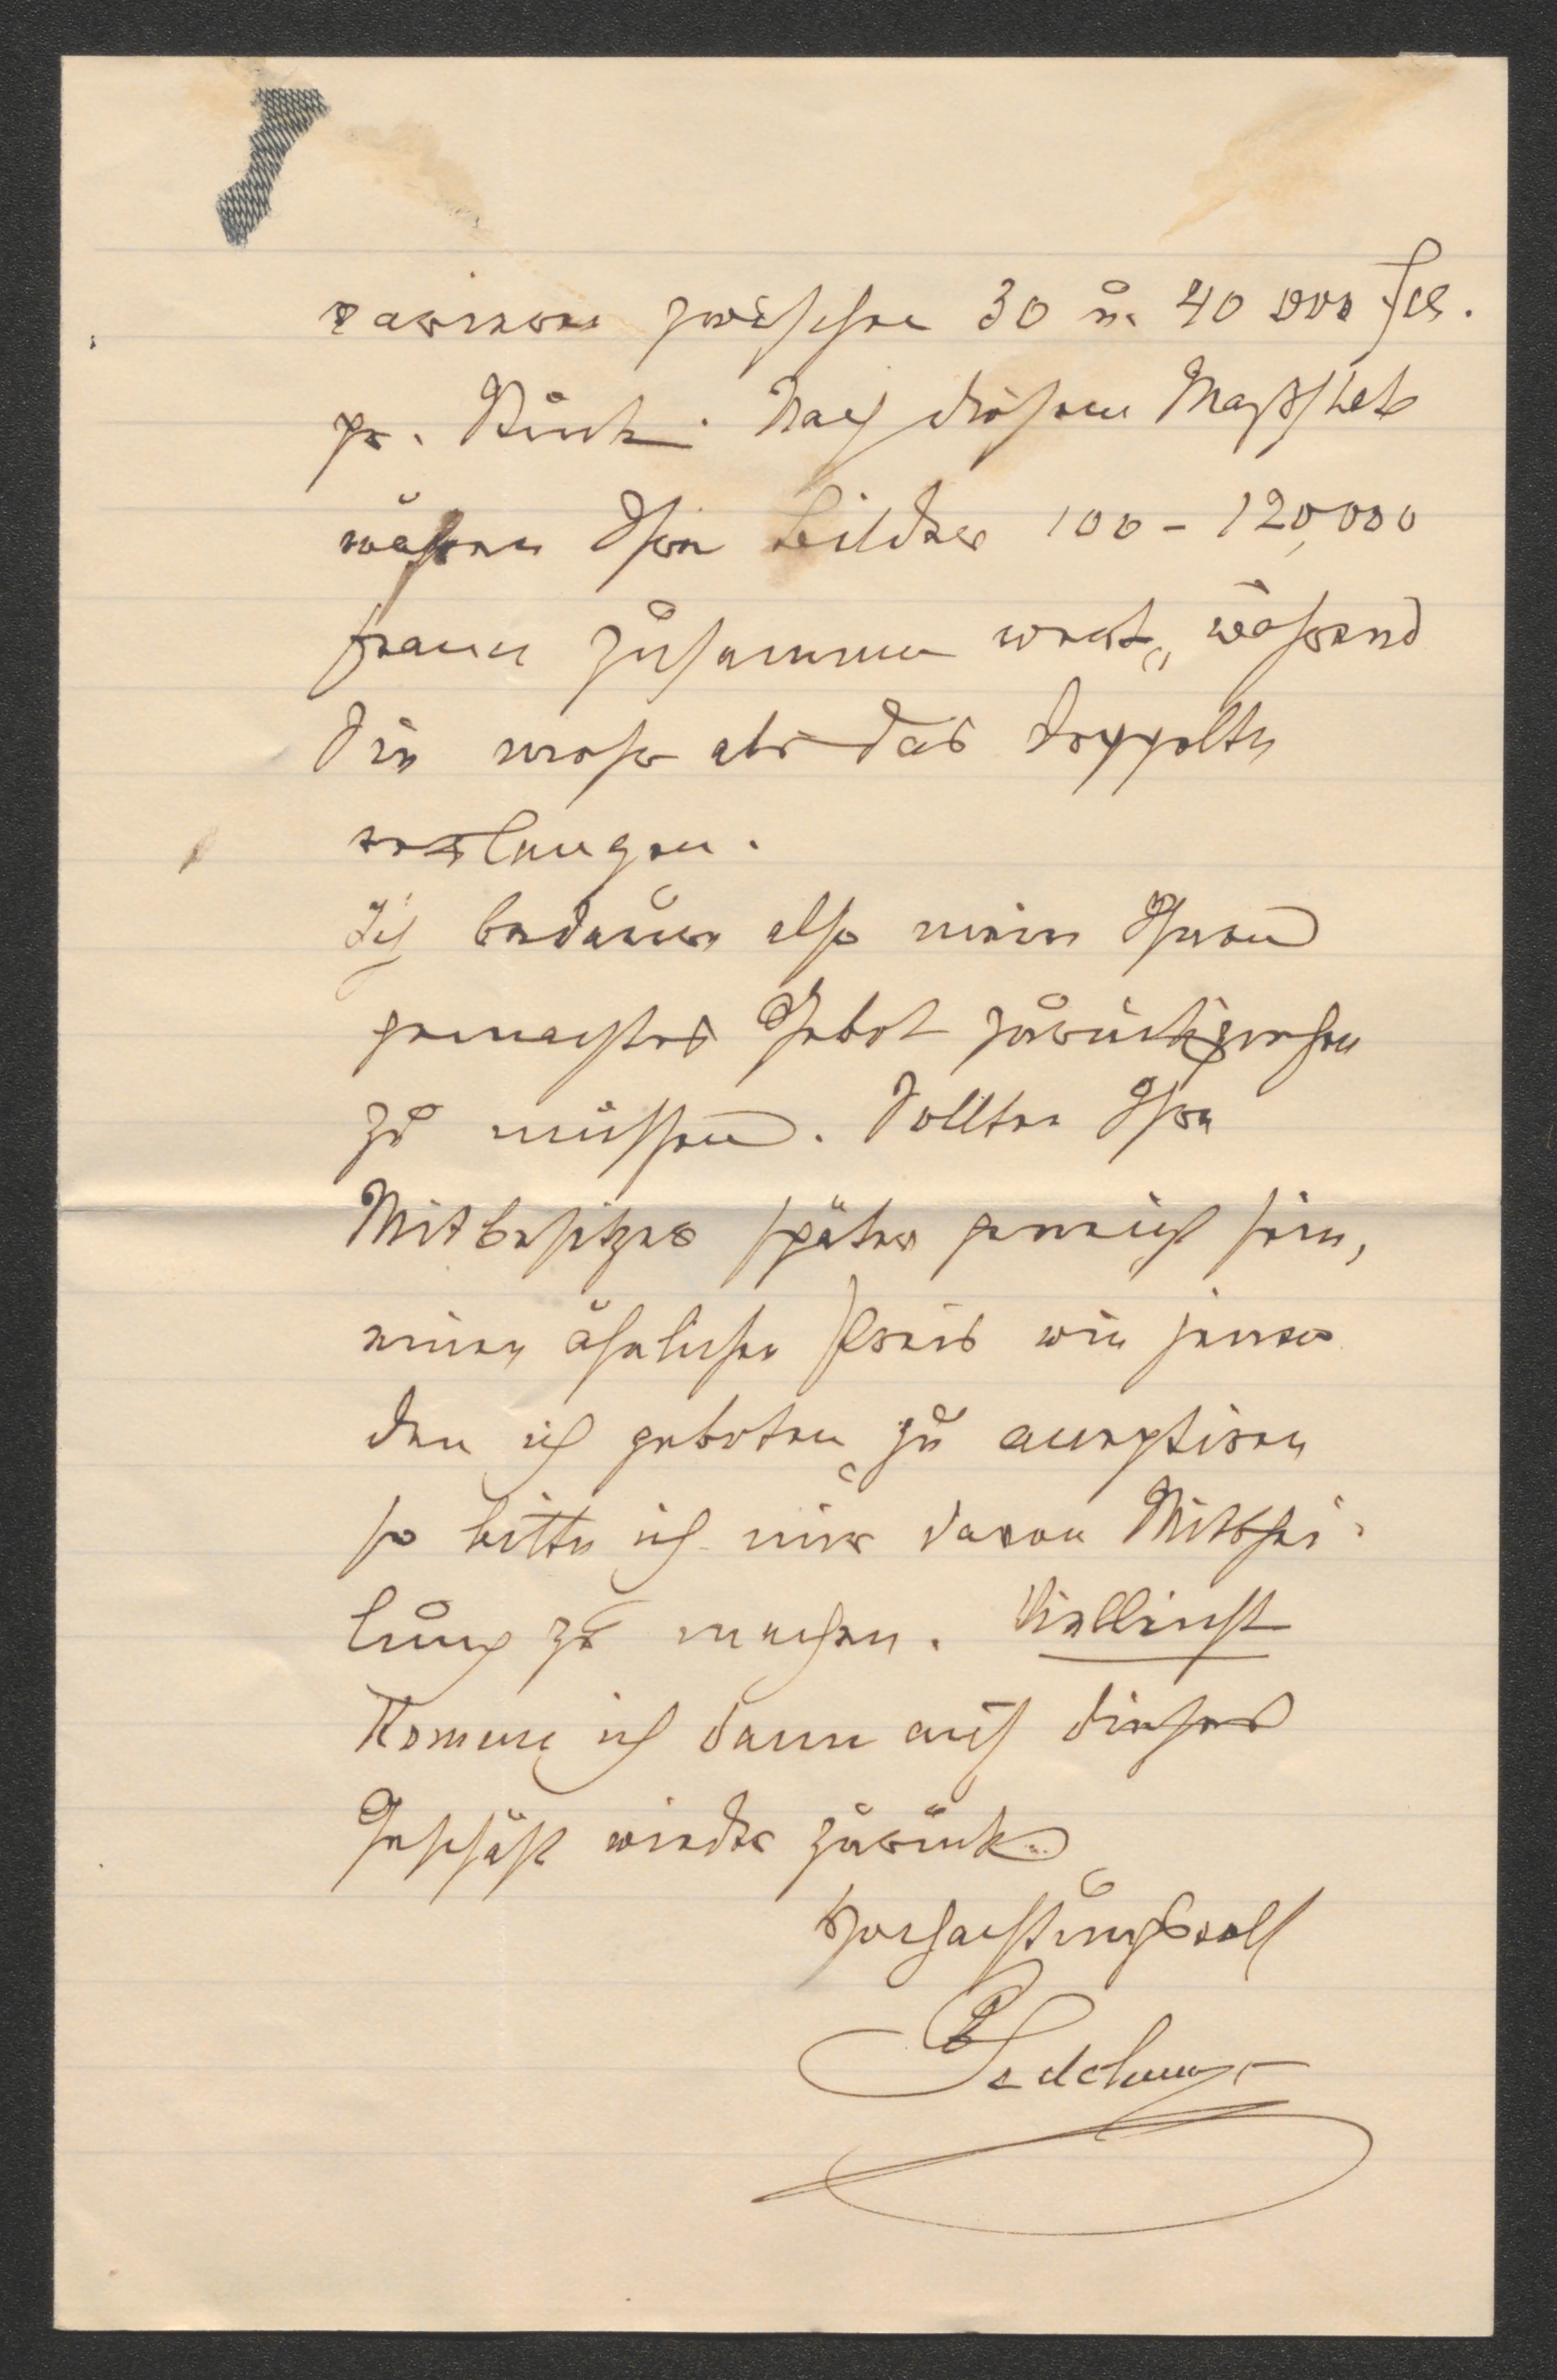 variren zwischen 30 u. 40 000 fcs.
pr. Stück. Nach diesem Maßstab
wären Ihre Bilder 100 - 120,000
francs zusammen wert, während
Sie mehr als das doppelte
verlangen.
Ich bedaure also mein Ihnen
gemachtes Gebot zurückziehen
zu müssen. Sollten Ihre
Mitbesitzer später geneigt sein,
einen ähnlichen Preis wie jener
den ich geboten, zu acceptiren
so bitte ich mir davon Mitthei-
lung zu machen. Vielleicht
komme ich dann auf dieses
Geschäft wieder zurück.
Hochachtungsvoll
Sedelmeyer